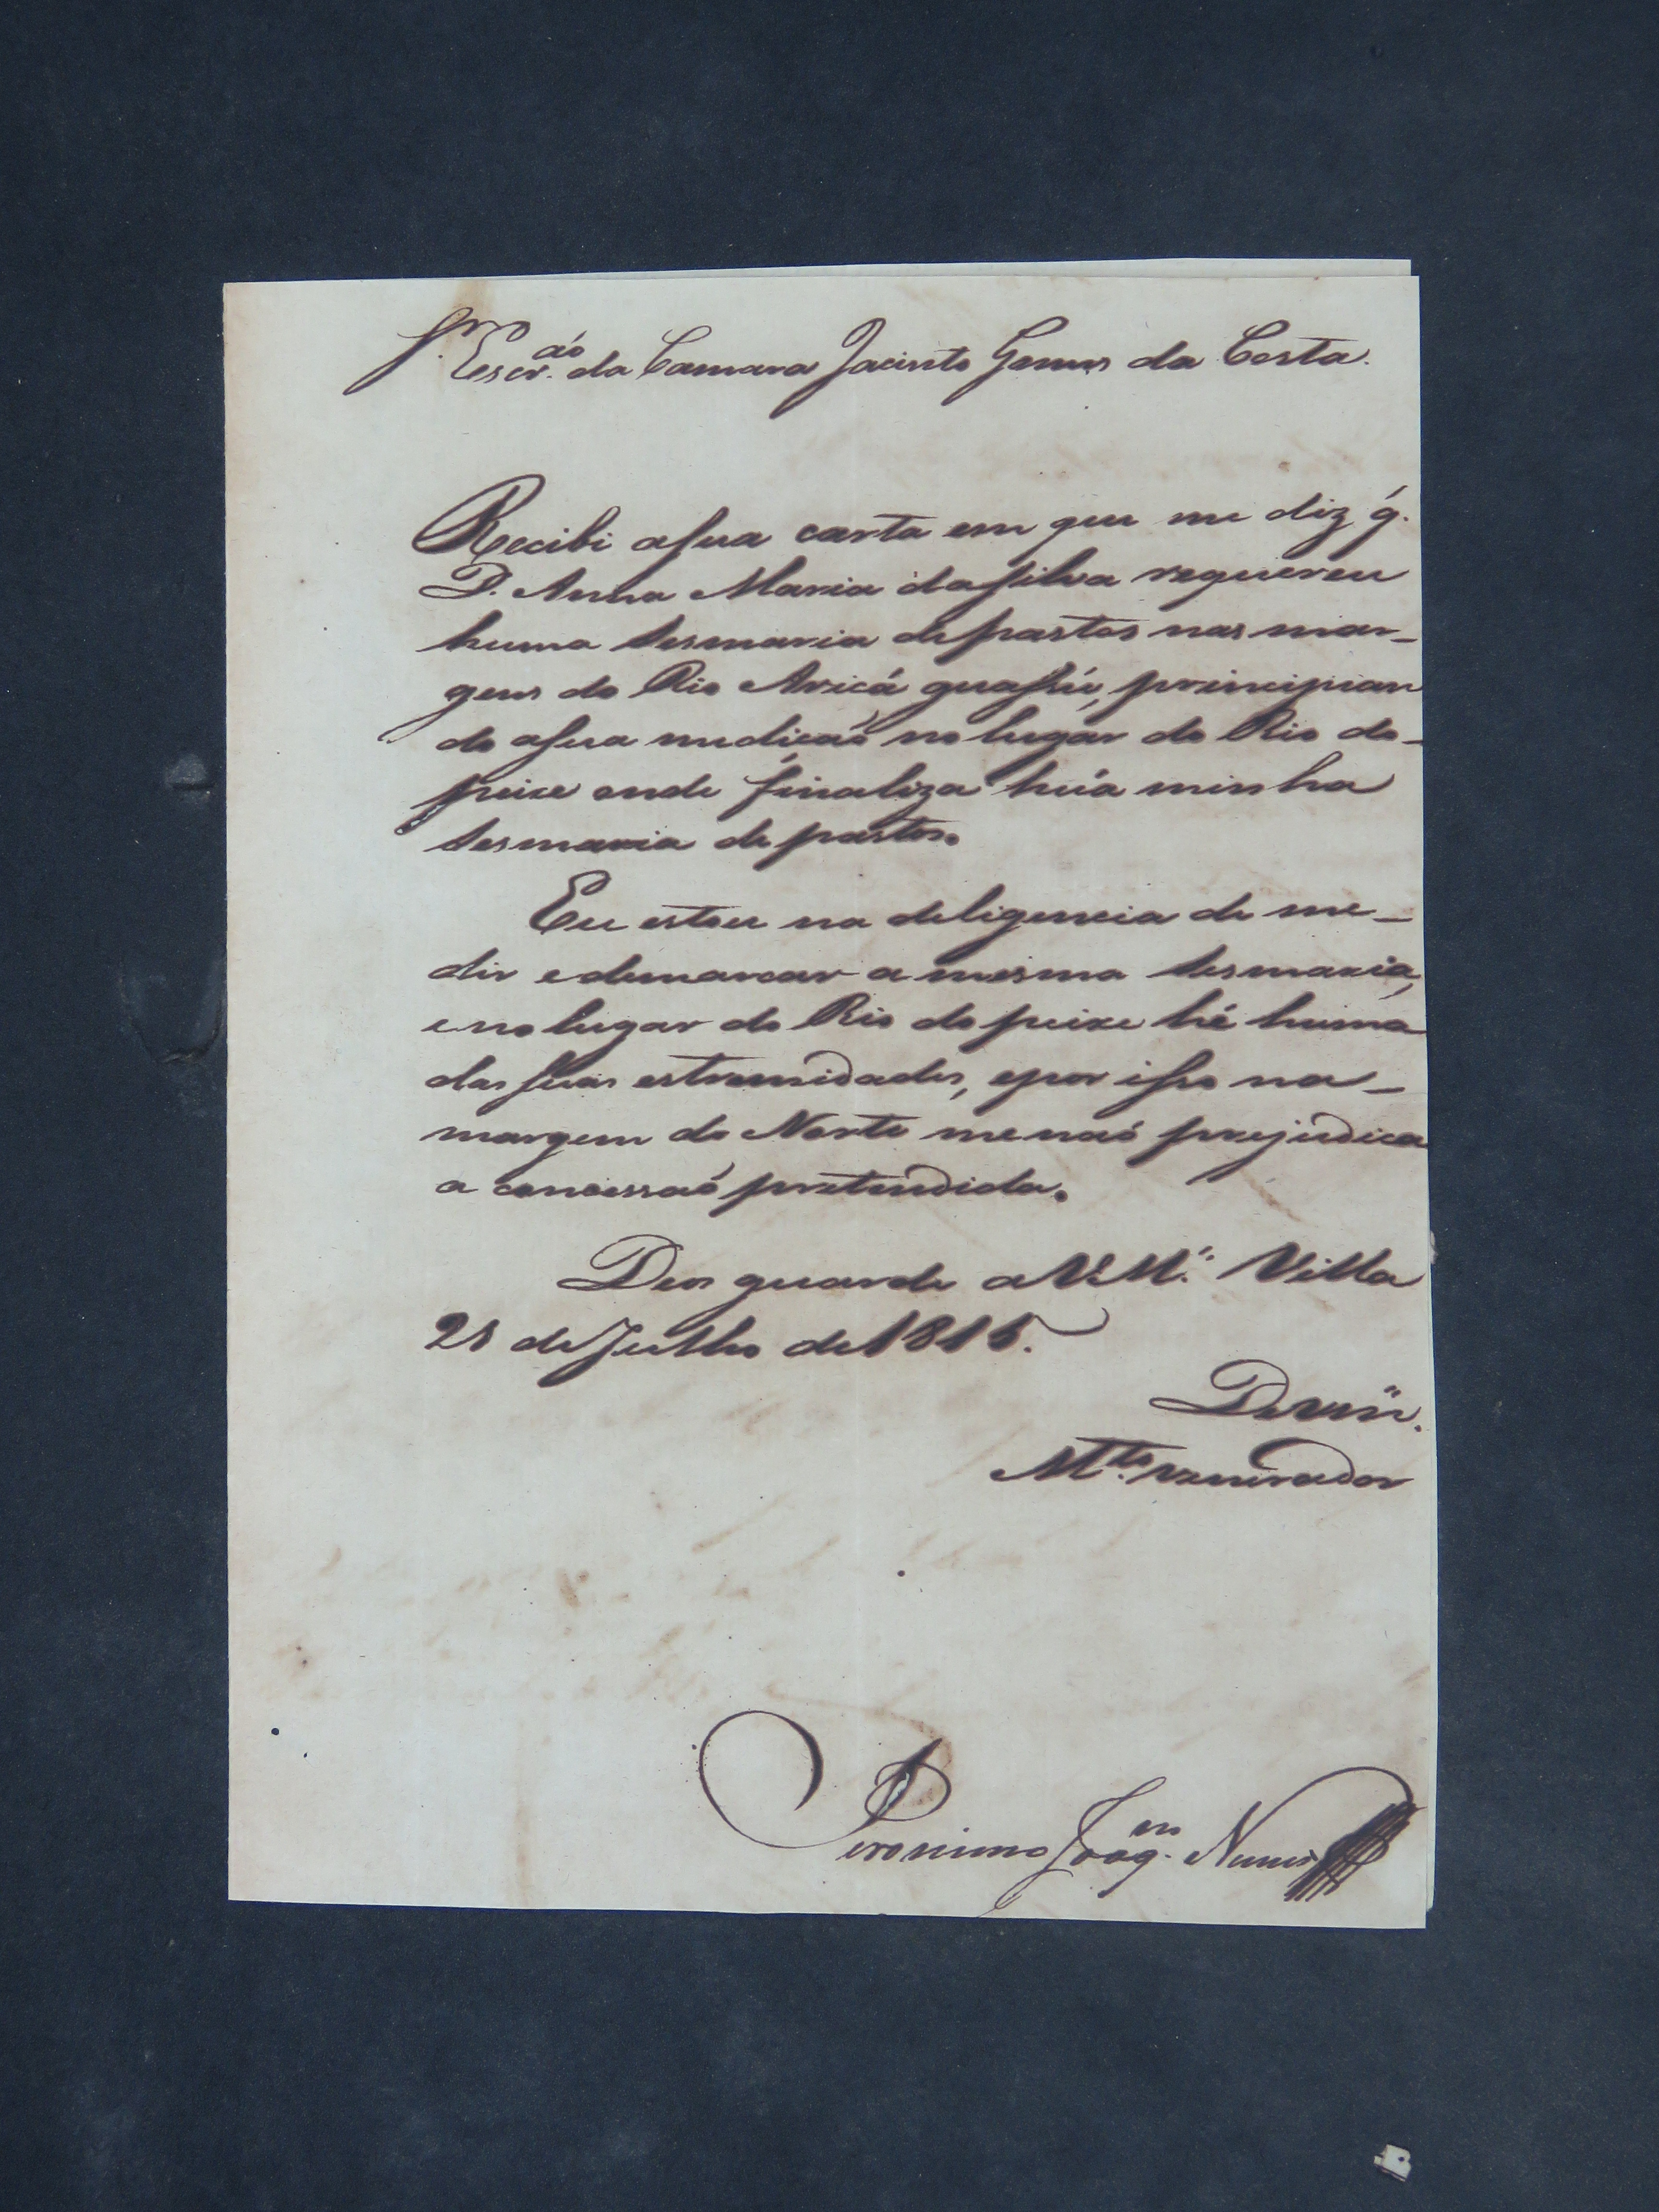 Snr. Escr.ão da Camara Jacinto Gomes da Costa.
Recibi asua carta em que me diz q̃.
D. Anna Maria dasilva requereu
huma sesmaria depastos nas mar-
gens do Rio Aricá guassú, principian
do asua mediçaõ no lugar do Rio do-
peixe onde finaliza hũa minha
sesmaria de pastos.
Eu estou na deligencia de me-
dir e demarcar a mesma sesmaria,
e no lugar do Rio do peixe hé huma
das suas estremidades, epor isso na-
margem do Norte me naõ prejudica
a concessaõ pretendida.
Deos guarde a V.M.ce Villa
28 de Julho de 1815.
De Vm.ce
M.to venerador
Jeronimo Joaq.m Nunes